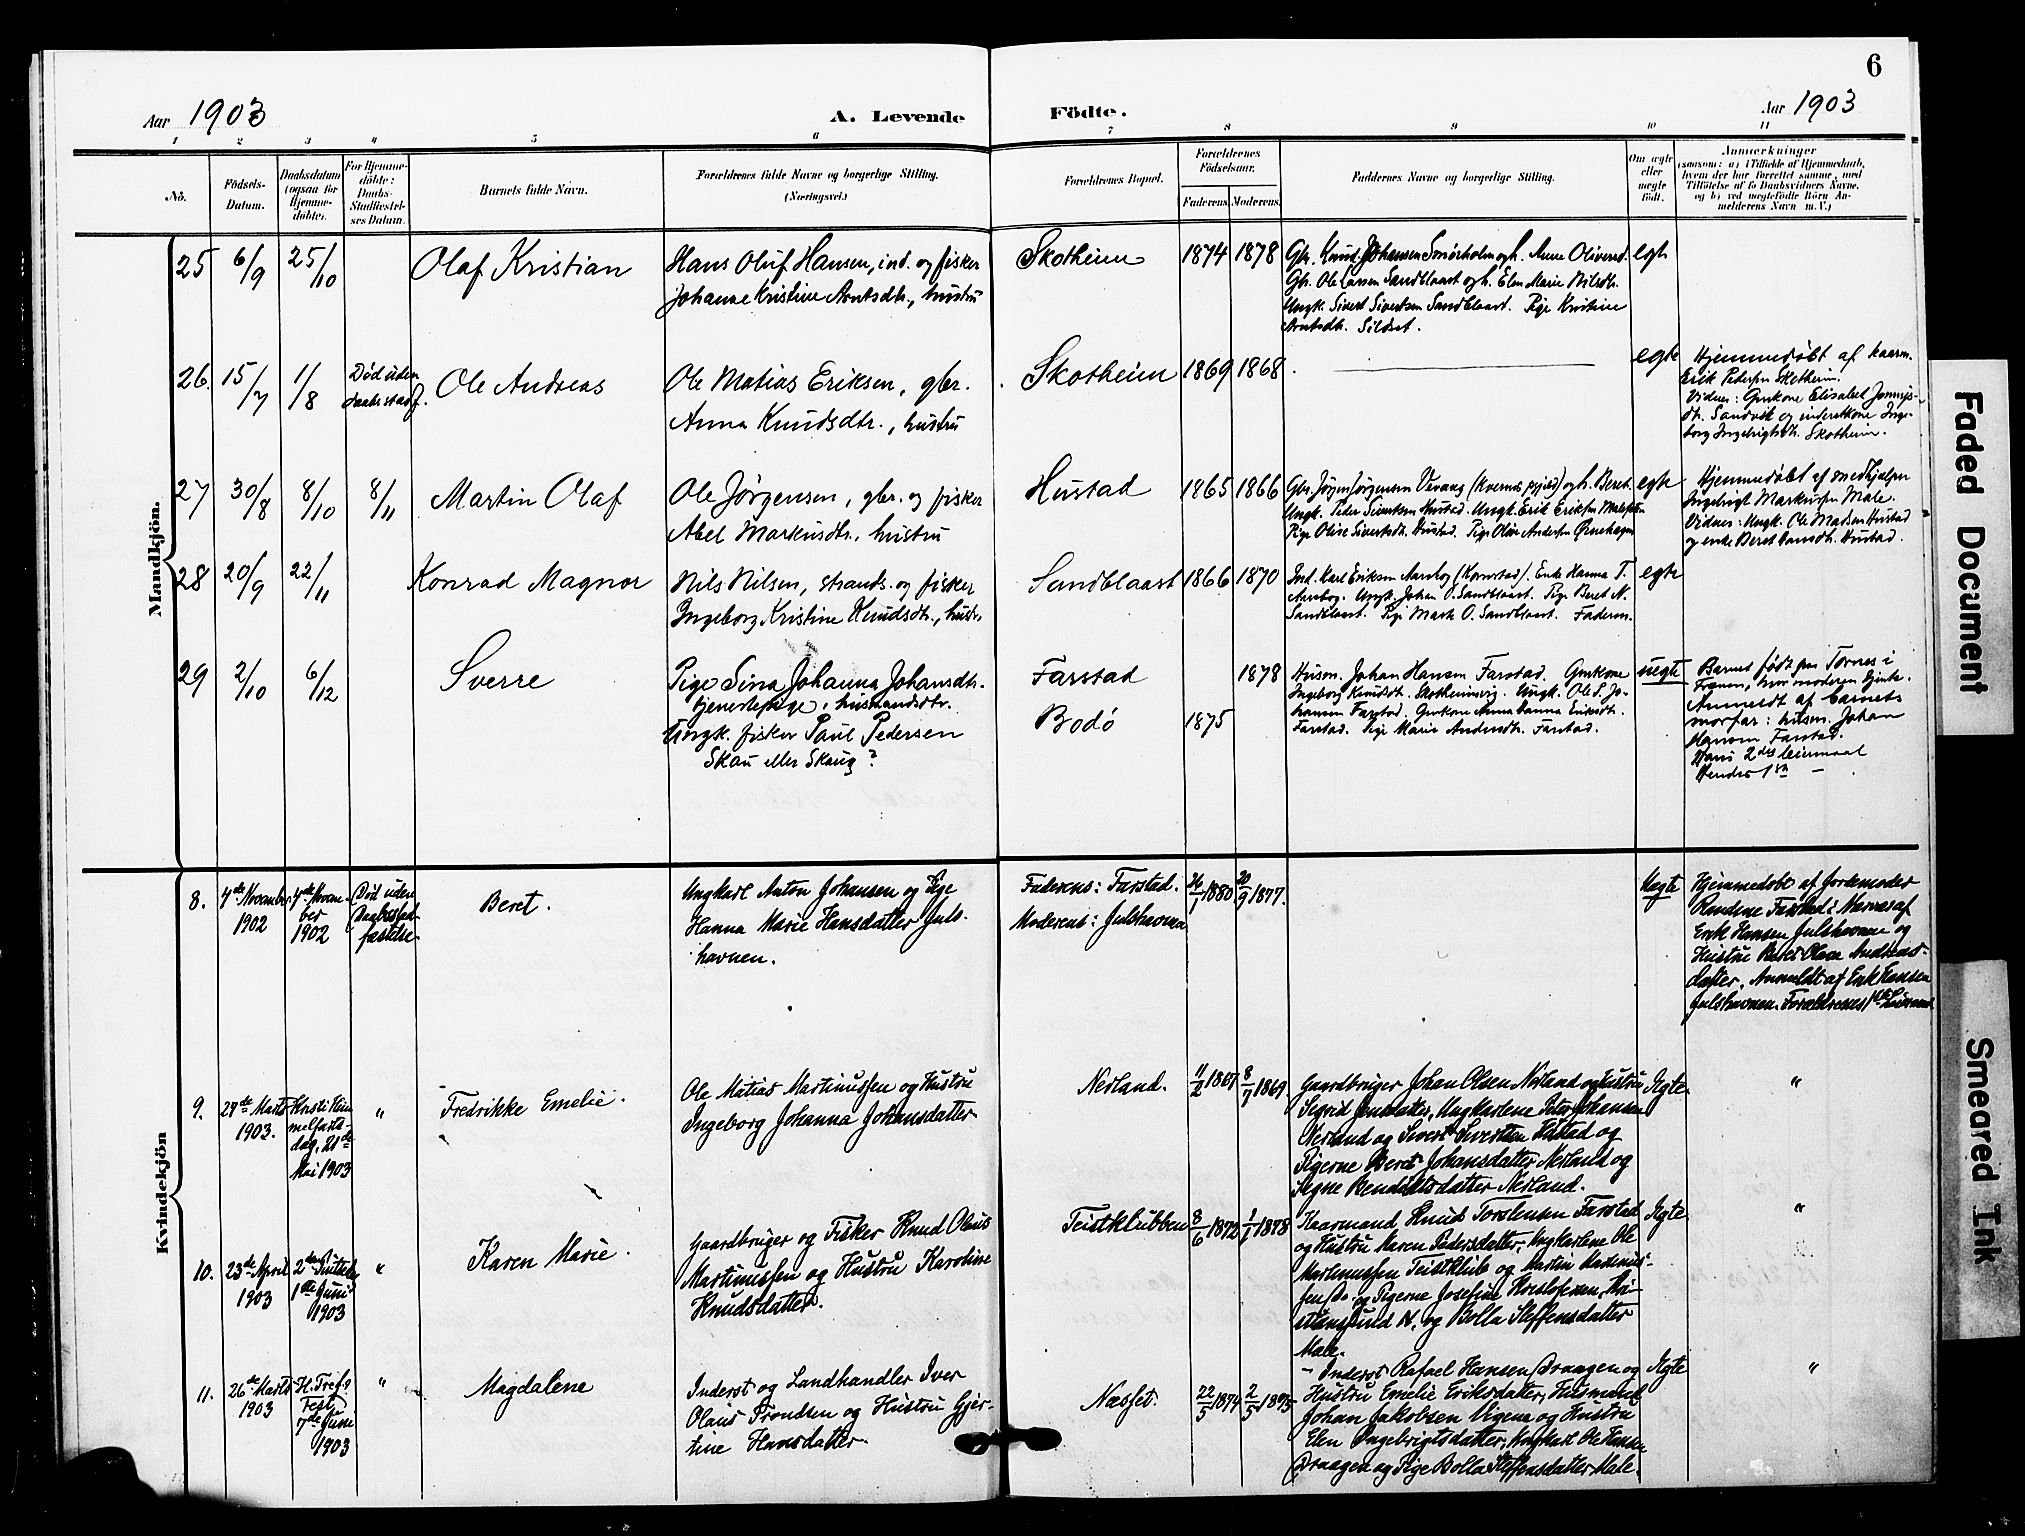 6
Aar 1903
A. Levende
Födte.
Aar 1903
1 2 3 4 5 6 7 8 9 10 11
No.
Födsels-
Datum.
Daabsdatum
(ogsaa for
Hjemme-
döbte).
For Hjemme-
döbte:
Daabs-
Stadfæstel-
ses Datum.
Barnets fulde Navn.
Forældrenes fulde Navne og borgerlige Stilling.
(Næringsvei.)
Forældrenes Bopæl.
Forældrenes
Födselsaar.
Faderens. Moderens.
Faddernes Navne og borgerlige Stilling.
Om ægte
eller
uægte
födt.
Anmærkninger
(saasom: a) i Tilfælde af Hjemmedaab,
hvem der har forrettet samme, med
Tilföielse af to Daabsvidners Navne,
og b) ved uægtefödte Börn An-
melderens Navn m. V.)
Mandkjön.
25 6/9 25/10 Olaf Kristian
Hans Oluf Hansen, ind. og fisker
Johanne Kristine Arntsdtr., hustru
Skotheim 1874 1878
Gbr. Knud Johansen Smørholm og h. Anne Olivesd.
Gbr. Ole Larsen Sandblaast og h. Elen Marie Nilsdtr.
Ungk. Sivert Sivertsen Sandblaast. Pige Kristine
Arntsdtr. Sildset.
egte
26. 15/7 1/8
Død uden
daabsstadf.
Ole Andreas
Ole Matias Eriksen, gbr.
Anna Knudsdtr., hustru
Skotheim 1869 1868
egte
Hjemmedøbt af kaarm.
Erik Pedersen Skotheim.
Vidner: Gmkone Elisabet
dtr. Sandvik og inderstkone Inge-
borg Ingebrigtsdtr. Skotheim.
27 30/8 8/10 8/11 Martin Olaf
Ole Jørgensen, gbr. og fisker
Abel Markusdtr., hustru
Hustad 1865 1866
Gbr. Jørgen Jørgensen Vevang og h. Beret
Ungk. Peder Sivertsen Hustad. Ungk. Erik Eriksen
Pige Oline Sivertsdtr. Hustad. Pige Oline Andersen
egte
Hjemmedøbt af medhjælper
Ingebrigt Markussen Male.
Vidner: Ungk. Ole Madsen Hustad
og enke Beret Hansdtr. Hustad.
28 20/9 22/11 Konrad Magnor
Nils Nilsen, strands. og fisker
Ingeborg Kristine Knudsdtr., hustr.
Sandblaast 1866 1870
Ind. Karl Eriksen Aarsbog (Kornstad). Enke Hanna T.
Aarsbog. Ungk. Johan O. Sandblaast. Pige Beret N.
Sandblaast. Pige Marta O. Sandblaast. Faderen.
egte
29 2/10 6/12 Sverre
Pige Sina Johanna Johansdtr.
tjenestepige, husmandsdtr.
Ungk. fisker Paul Pedersen
Skau eller Skaug?
Farstad 1878
Bodø 1875
Husm. Johan Hansen Farstad. Gmkone
Ingeborg Knudsdtr. Skotheimsvig. Ungk. Ole S. Jo-
hansen Farstad. Gmkone Anna Hanna Eriksdtr.
Farstad. Pige Marie Andersdtr. Farstad.
uegte
Barnet født paa Tornes i
Frænen, hvor moderen tjente.
Anmeldt af barnets
morfar: husm. Johan
Hansen Farstad.
Hans 2det leiermaal
Hendes 1ste —
Kvindekjön
8. 7de November
1902
7de Novem-
ber
1902
Død uden
Daabsstad-
fæstelse
Beret.
Ungkarl Anton Johansen og Pige
Hanna Marie Hansdatter Juls-
havnen.
Faderens: Farstad.
Moderens: Julshavnen
26/1 1880. 20/9 1877.
Uegte
Hjemmedøbt af Jordemoder
Rendine Farstad i Nærvær af
Erik Hansen Julshavnen og
Hustru Beret Olave Andreas-
datter, Anmeldt af Erik Hansen
Julshavnen. Forældrenes 1ste Leiermaal
9. 29de Marts
1903.
Kristi Him-
melfarts-
dag, 21de
Mai 1903
"
Fredrikke Emelie.
Ole Matias Martinussen og Hustru
Ingeborg Johanna Johansdatter
Nerland. 11/2 1867 8/7 1869
Gaardbruger Johan Olsen Nerland og Hustru
Sigrid Jensdatter, Ungkarlene Peter Johansen
Nerland og Sivert Sivertsen Hustad og
Pigerne Beret Johansdatter Nerland og
Signe Bendiktsdatter Nerland.
Ægte "
10. 23de April
1903
2den Pintsedag
1ste Juni
1903
"
Karen Marie.
Gaardbruger og Fisker Knud Olaus
Martinussen og Hustru Karoline
Knudsdatter.
Teistklubben 8/6 1872 1/1 1878
Kaarmand Knud Torstensen Farstad
og Hustru Maren Pedersdatter, Ungkarlene Ole
Martinussen Teistklub og Martin Martinus-
sen do. og Pigerne Josefine Kristofersen, Kri-
stiansund N. og Bolla Steffensdatter
Male.
Ægte "
11. 26de Marts
1903
H. Tref.
Fest,
7de Juni
1903
"
Magdalene
Inderst og Landhandler Iver
Olaus Trondsen og Hustru Gjer-
tine Hansdatter
Næsset. 22/5 1874 2/5 1875
- Inderst Rafael Hansen Draagen og
Hustru Emelie Eriksdatter, Husmand
Johan Jakobsen Vigene og Hustru
Elen Ingebrigtsdatter, Ungkarl Ole Hansen
Draagen og Pige Bolla Steffensdatter Male.
Ægte "
Faded Document
Smeared Ink